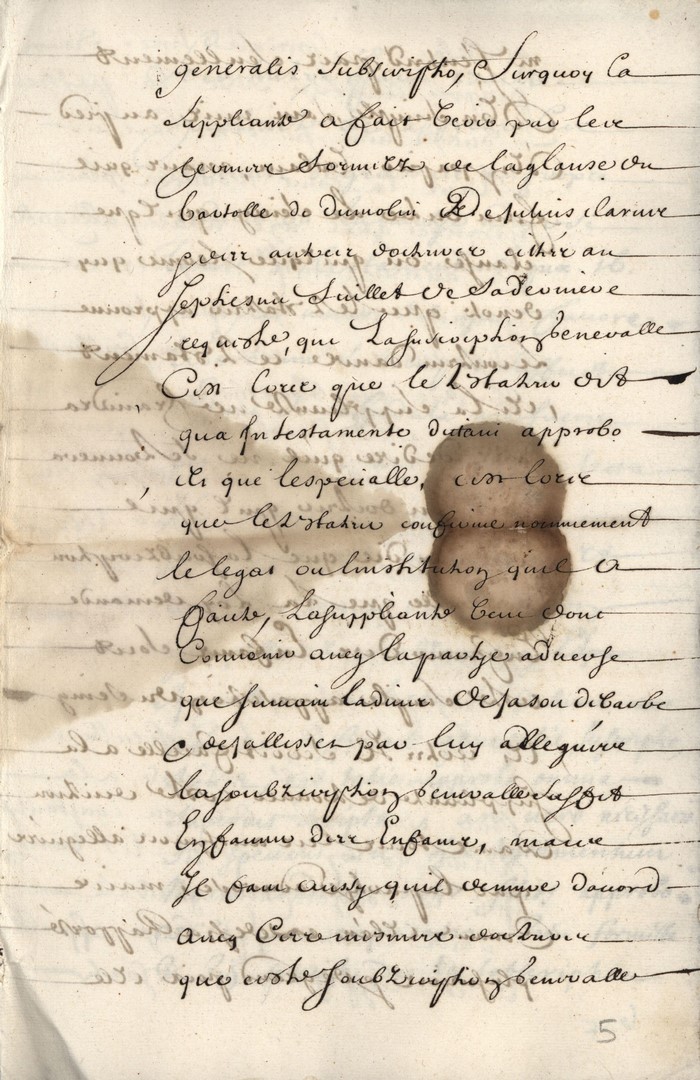 generalis subscriptio, Surquoy la
suppliante a fait veoir par les
termes formelz de la glause du
bartolle de dumolin & de plusieurs
autres docteurs cittés au
septiesme fuillet de sa derniere
requeste, que la suscription generalle
C'est lors que le testateur dit
qua in testamento dictavi approbo
et que lespecialle, c'est lors
que le testateur confirme nommement
le legat ou linstitution quil a
faite, la suppliante veut dont
Convenir avecq la partye adverse
que suivant ladvis de jason de balde
& de par luy alleguéz
la soubzscription generalle suffit
Enfaveur des Enfans, mais
Il faut aussy quil demeure d'acord
avecq Ces mesmes docteurs
que ceste soubzscription generalle
5